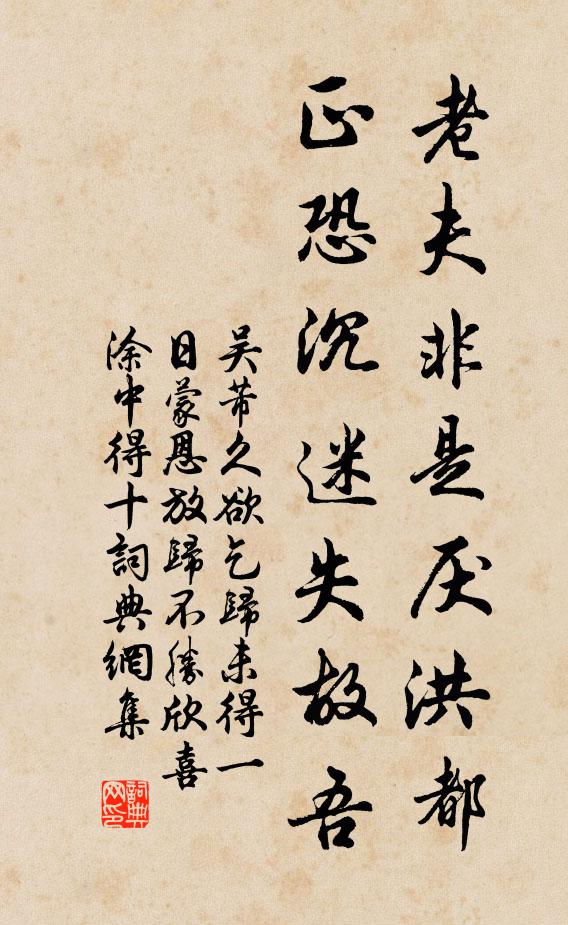 老夫非是厌洪都
正恐沉迷失故吾
吴芾久欲乞歸未得一
日蒙恩放歸不勝欣喜
涂中得十詞典網集
詞典网印